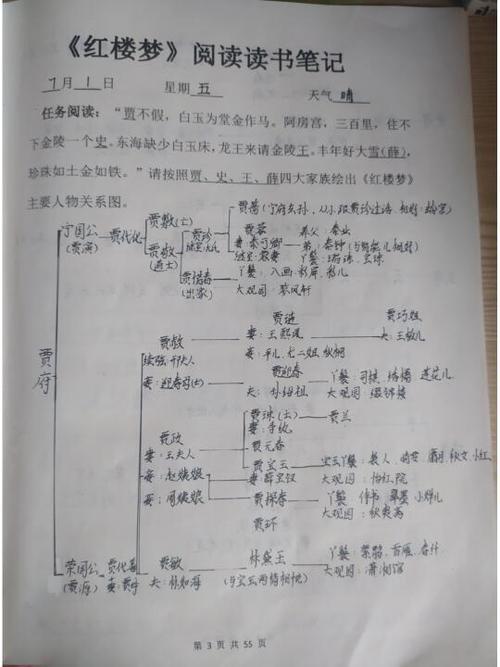 《红楼梦》阅读读书笔记
7月1日 星期五 天气晴
任务阅读：“贾不假，白玉为堂金作马。阿房宫，三百里，住不
下金陵一个史。东海缺少白玉床，龙王来请金陵王。丰年好大雪(薛)，
珍珠如土金如铁。”请按照贾、史、王、薛四大家族绘出《红楼梦》
主要人物关系图。
贾府
宁国公(贾演) 贾代化
贾敷(亡)
贾敬(道士)
贾珍
贾惜春(出家)
贾蔷
贾蓉 养父：
妻：秦可卿 弟：秦钟
丫鬟：瑞珠、宝珠
丫鬟：入画、彩屏、彩儿
大观园：
贾赦
续弦：邢夫人
妾：迎春母(亡)
贾琏 贾巧姐
妻：王熙凤 夫：
妾：平儿、尤二姐、秋桐
贾迎春 丫鬟：司棋、绣橘、莲花儿
夫：孙绍祖 大观园：缀锦楼
贾政
妻：王夫人
妾：赵姨娘
妾：周姨娘
贾珠(亡) 贾兰
妻：李纨
贾元春
贾宝玉 宝玉丫鬟：袭人、晴雯、麝月、秋文、小红
妻：薛宝钗 大观园：怡红院
贾探春 丫鬟：侍书、翠墨、小蝉儿
大观园：秋爽斋
贾环
荣国公(贾源) 贾代善
妻：贾母
贾敏
夫：林如海
林黛玉 丫鬟：紫鹃、雪雁、春纤
(与宝玉两情相悦) 大观园：潇湘馆
第 3 页 共 55 页